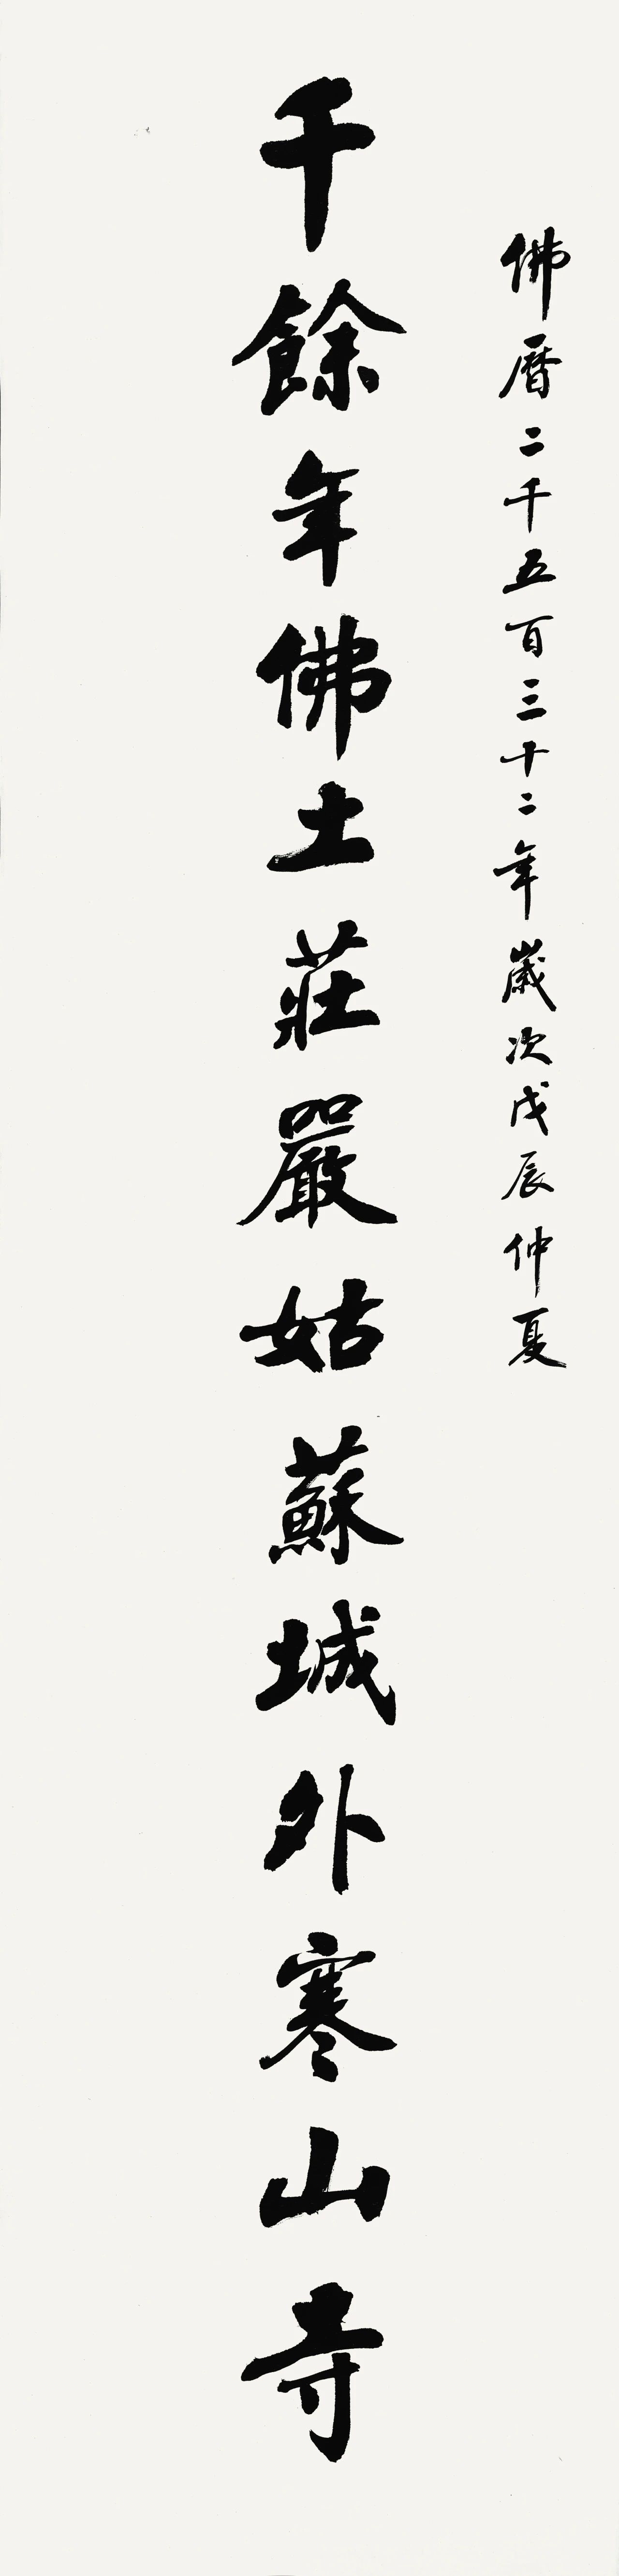 佛曆二千五百三十二年歲次戊辰仲夏
千餘年佛土莊嚴姑蘇城外寒山寺